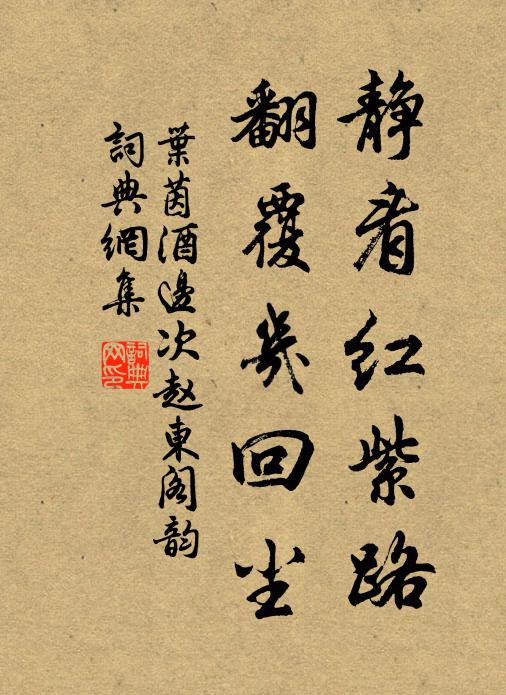 静看红紫路
翻覆几回尘
葉茵酒邊次赵東阁韵
詞典網集
詞典网印